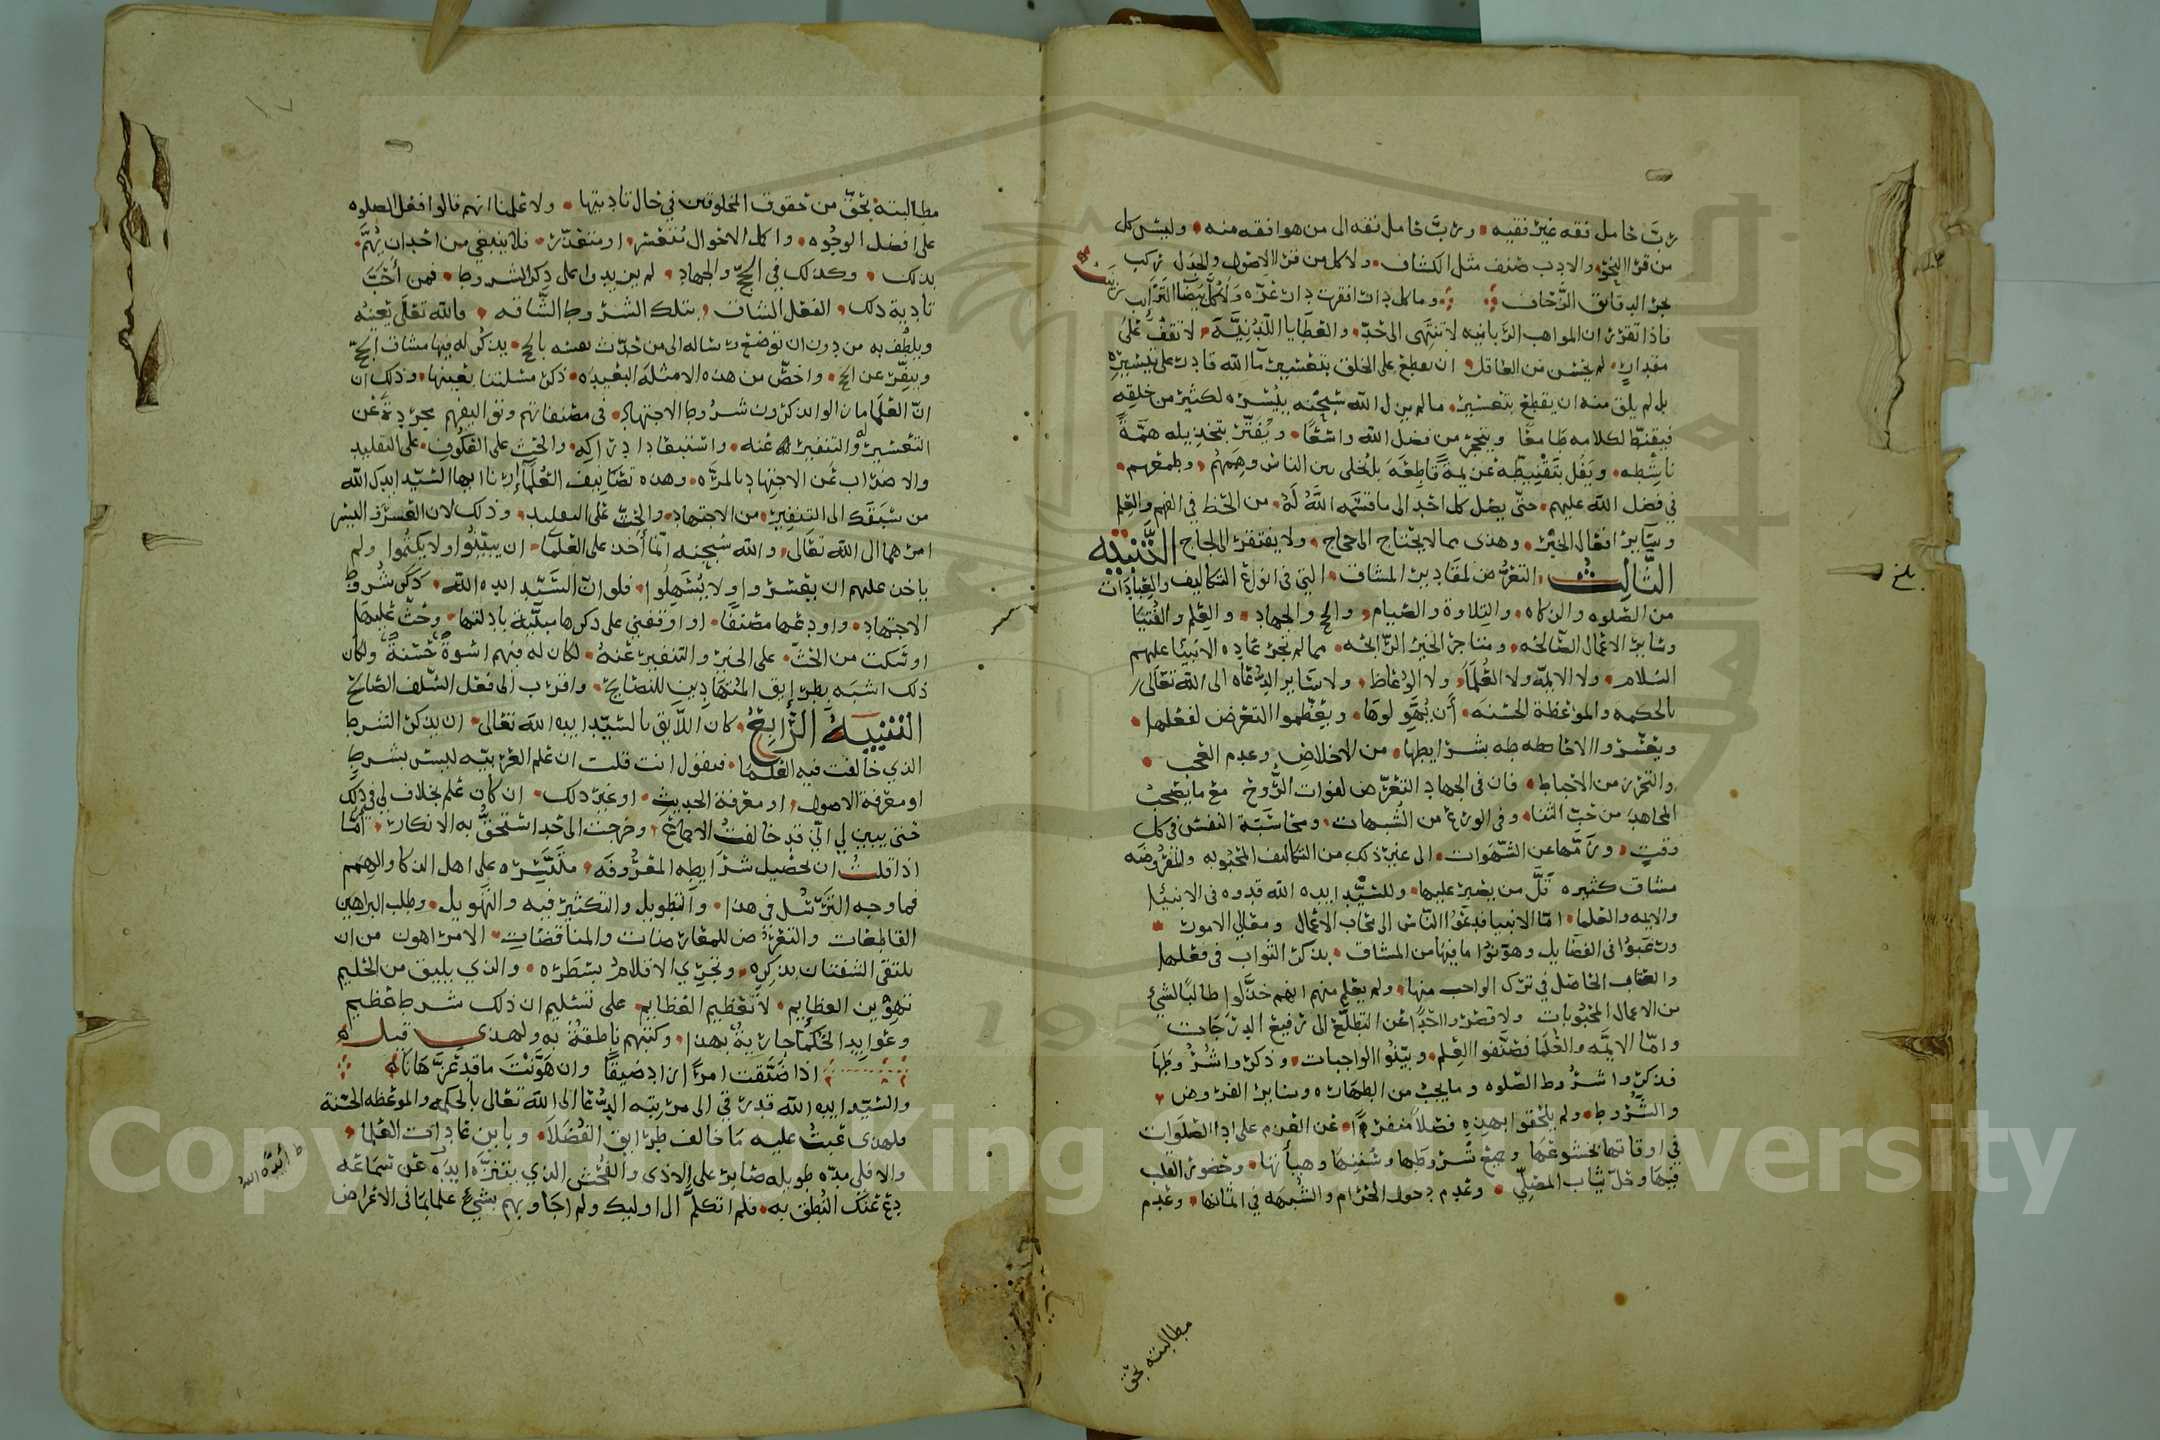 رب حامل فقه غير فقيه ورب حامل فقه الى من هو افقه منه وليس كل
من قرا النحو والادب صنف مثل الكشاف ولا كل من قرا الاصول والجدل ركب
بحر الدقايق الرجاف وما كل دار اقفرت دارة عزه ولا كل بيضا الترايب زينب
فاذا تقرر ان المواهب الربانيه لا تنتهي الى حد والعطايا اللدنيه لا تقف على
مقدار لم يحسن من العاقل ان يقطع على الخلق بتعسير ما الله قادر على تيسيره
بل لم يلق منه ان يقطع بتعسير ما لم يزل الله سبحنه ييسره لكثير من خلقه
فيقنط لكلامه طامعا ويتحجر من فضل الله واسعا ويفتر بتخذيله همة
ناشطه ويفل بتقنيطه عزيمة قاطعه بل يخلى بين الناس وهممهم وطمعهم
في فضل الله عليهم حتى يصل كل احد الى ما قسمه الله له من الحظ في الفهم والعلم
وساير افعال الخير وهذى مما لا يحتاج الى حجاج ولا يفتقر الى لجاج التنبيه
الثالث التعرض لمقادير المشاق التي في انواع التكاليف والعبادات
من الصلوه والزكاه والتلاوة والصيام والحج والجهاد والعلم والفتيا
وساير الاعمال الصالحه ومتاجر الخير الرابحه مما لم تجر عاده الانبيا عليهم
السلام ولا الايمه ولا العلما ولا الوعاظ ولا ساير الدعاه الى الله تعالى
بالحكمه والموعظة الحسنه أن يهولوها ويعظموا التعرض لفعلها
ويعسروا الاحاطه بشرايطها من الاخلاص وعدم العجب
والتحرز من الاحباط فان في الجهاد التعرض لفوات الروح مع ما يصحب
المجاهد من حب الثنا وفي الورع من الشبهات ومحاسبة النفس في كل
وقت وزمها عن الشهوات الى غير ذلك من التكاليف المحبوبه والمفروضه
مشاق كثيره قل من يصبر عليها وللسيد ايده الله قدوه في الانبيا
والايمه والعلما اما الانبيا فدعوا الناس الى محاب الاعمال ومعالي الامور
ورغبوا في الفضايل وهونوا ما فيها من المشاق بذكر الثواب في فعلها
والعقاب الحاصل في ترك الواجب منها ولم يعلم منهم انهم خذلوا طالبا لشي
من الاعمال المحبوبات ولا قصروا احدا عن التطلع الى رفيع الدرجات
واما الايمه والعلما فصنفوا العلم وبينوا الواجبات وذكروا شروطها
فذكروا شروط الصلوه وما يجب من الطهاره وساير الفروض
والشروط ولم يلحقوا بهذه فصلا منفرا عن العزم على ادا الصلوات
في اوقاتها بخشوعها وجميع شروطها وسننها وهيأتها وحضور القلب
فيها وحل ثياب المصلي وعدم دخول الحرام والشبهه في اثمانها وعدم
مطالبته بحق
بلغ
مطالبته بحق من حقوق المخلوقين في حال تاديتها ولا علمنا انهم قالوا فعل الصلوه
على افضل الوجوه واكمل الاحوال متعسر او متعذر فلا ينبغي من احد ان يهم
بذلك وكذلك في الحج والجهاد لم يزيدوا على ذكر الشروط فمن أحب
تادية ذلك الفعل الشاق بتلك الشروط الشاقه فالله تعلى يعينه
ويلطف به من دون ان توضع رساله الى من حدث نفسه بالحج يذكر له فيها مشاق الحج
وينفر عن الحج واخص من هذه الامثله البعيده ذكر مسئلتنا بعينها وذلك ان
ان العلما ما زالوا يذكرون شروط الاجتهاد في مصنفاتهم وتواليفهم مجردة عن
التعسير له والتنفير عنه واستبعاد ادراكه والحث على العكوف على التقليد
والاضراب عن الاجتهاد بالمره وهذه تصانيف العلما أرنا ايها السيد ايدك الله
من سبقك الى التنفير من الاجتهاد والحث على التقليد وذلك لان العسر واليسر
امرهما الى الله تعالى والله سبحنه انما أخذ على العلما ان يبينوا ولا يكتموا ولم
ياخذ عليهم ان يعسروا ولا يسهلوا فلو ان السيد ايده الله ذكر شروط
الاجتهاد واودعها مصنفا او اوقفني على ذكرها مبينة بادلتها وحث عليها
او سكت من الحث على الخير والتنفير عنه لكان له فيهم اسوة حسنة ولكان
ذلك اشبه بطرايق المتهادين للنصايح واقرب الى فعل السلف الصالح
التنبيه الرابع كان اللايق بالسيد ايده الله تعالى ان يذكر الشرط
الذي خالفت فيه العلما فيقول انت قلت ان علم العربيه ليس بشرط
او معرفة الاصول او معرفة الحديث او غير ذلك ان كان علم بخلاف لي في ذلك
حتى يبين لي اني قد خالفت الاجماع وخرجت الى حد استحق به الانكار اما
اذا قلت ان تحصيل شرايطه المعروفه متيسره على اهل الذكا والهمم
فما وجه الترسل في هذا والتطويل والتكثير فيه والتهويل وطلب البراهين
القاطعات والتعرض للمعارضات والمناقضات الامر اهون من ان
يلتقى الشفتان بذكره وتجري الاقلام بسطره والذي يليق من الحليم
تهوين العظايم لا تعظيم العظايم على تسليم ان ذلك شرط عظيم
وعوايد الحكما جارية بهذا وكتبهم ناطقة به ولهذى قيل
اذا ضيقت امرا زاد ضيقا وان هونت ما قد عز هانا
والسيد ايده الله قد رقي الى مرتبه الدعا الى الله تعالى بالحكمه والموعظه الحسنة
فلهذى عبت عليه ما خالف طرايق الفضلا وباين عادات العلما
والا فلي مده طويله صابر على الاذى والفحش الذي يتنزه ايده عن سماعه
دع عنك النطق به فلم اتكلم الى اوليك ولم اجاوبهم بشيء علما بما في الاعراض
ط أيده الله